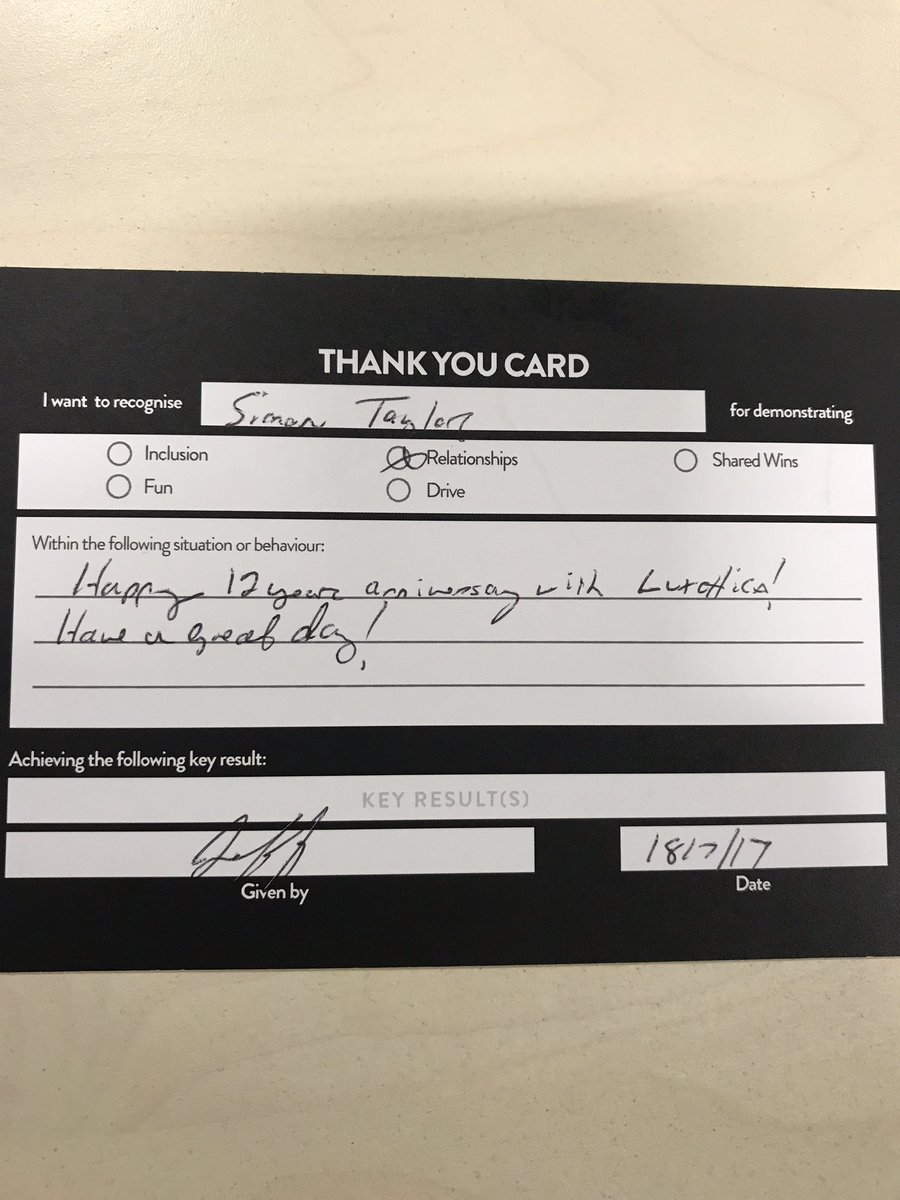 THANK YOU CARD
I want to recognise Simon Taylor for demonstrating
Inclusion Relationships Shared Wins
Fun Drive
Within the following situation or behaviour:
Happy 12 years anniversay with Luxottica!
Have a great day!
Achieving the following key result:
KEY RESULT(S)
Jeff 18/7/17
Given by Date